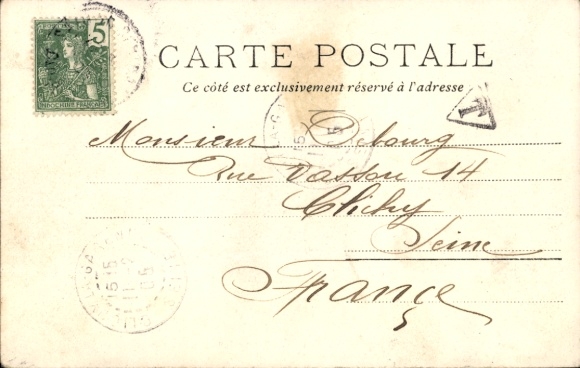 5
INDO-CHINE FRANÇAISE
CARTE POSTALE
Ce côté est exclusivement réservé à l'adresse
T
Monsieur
Rue Vassou 14
Clichy
Seine
France
15
11
05